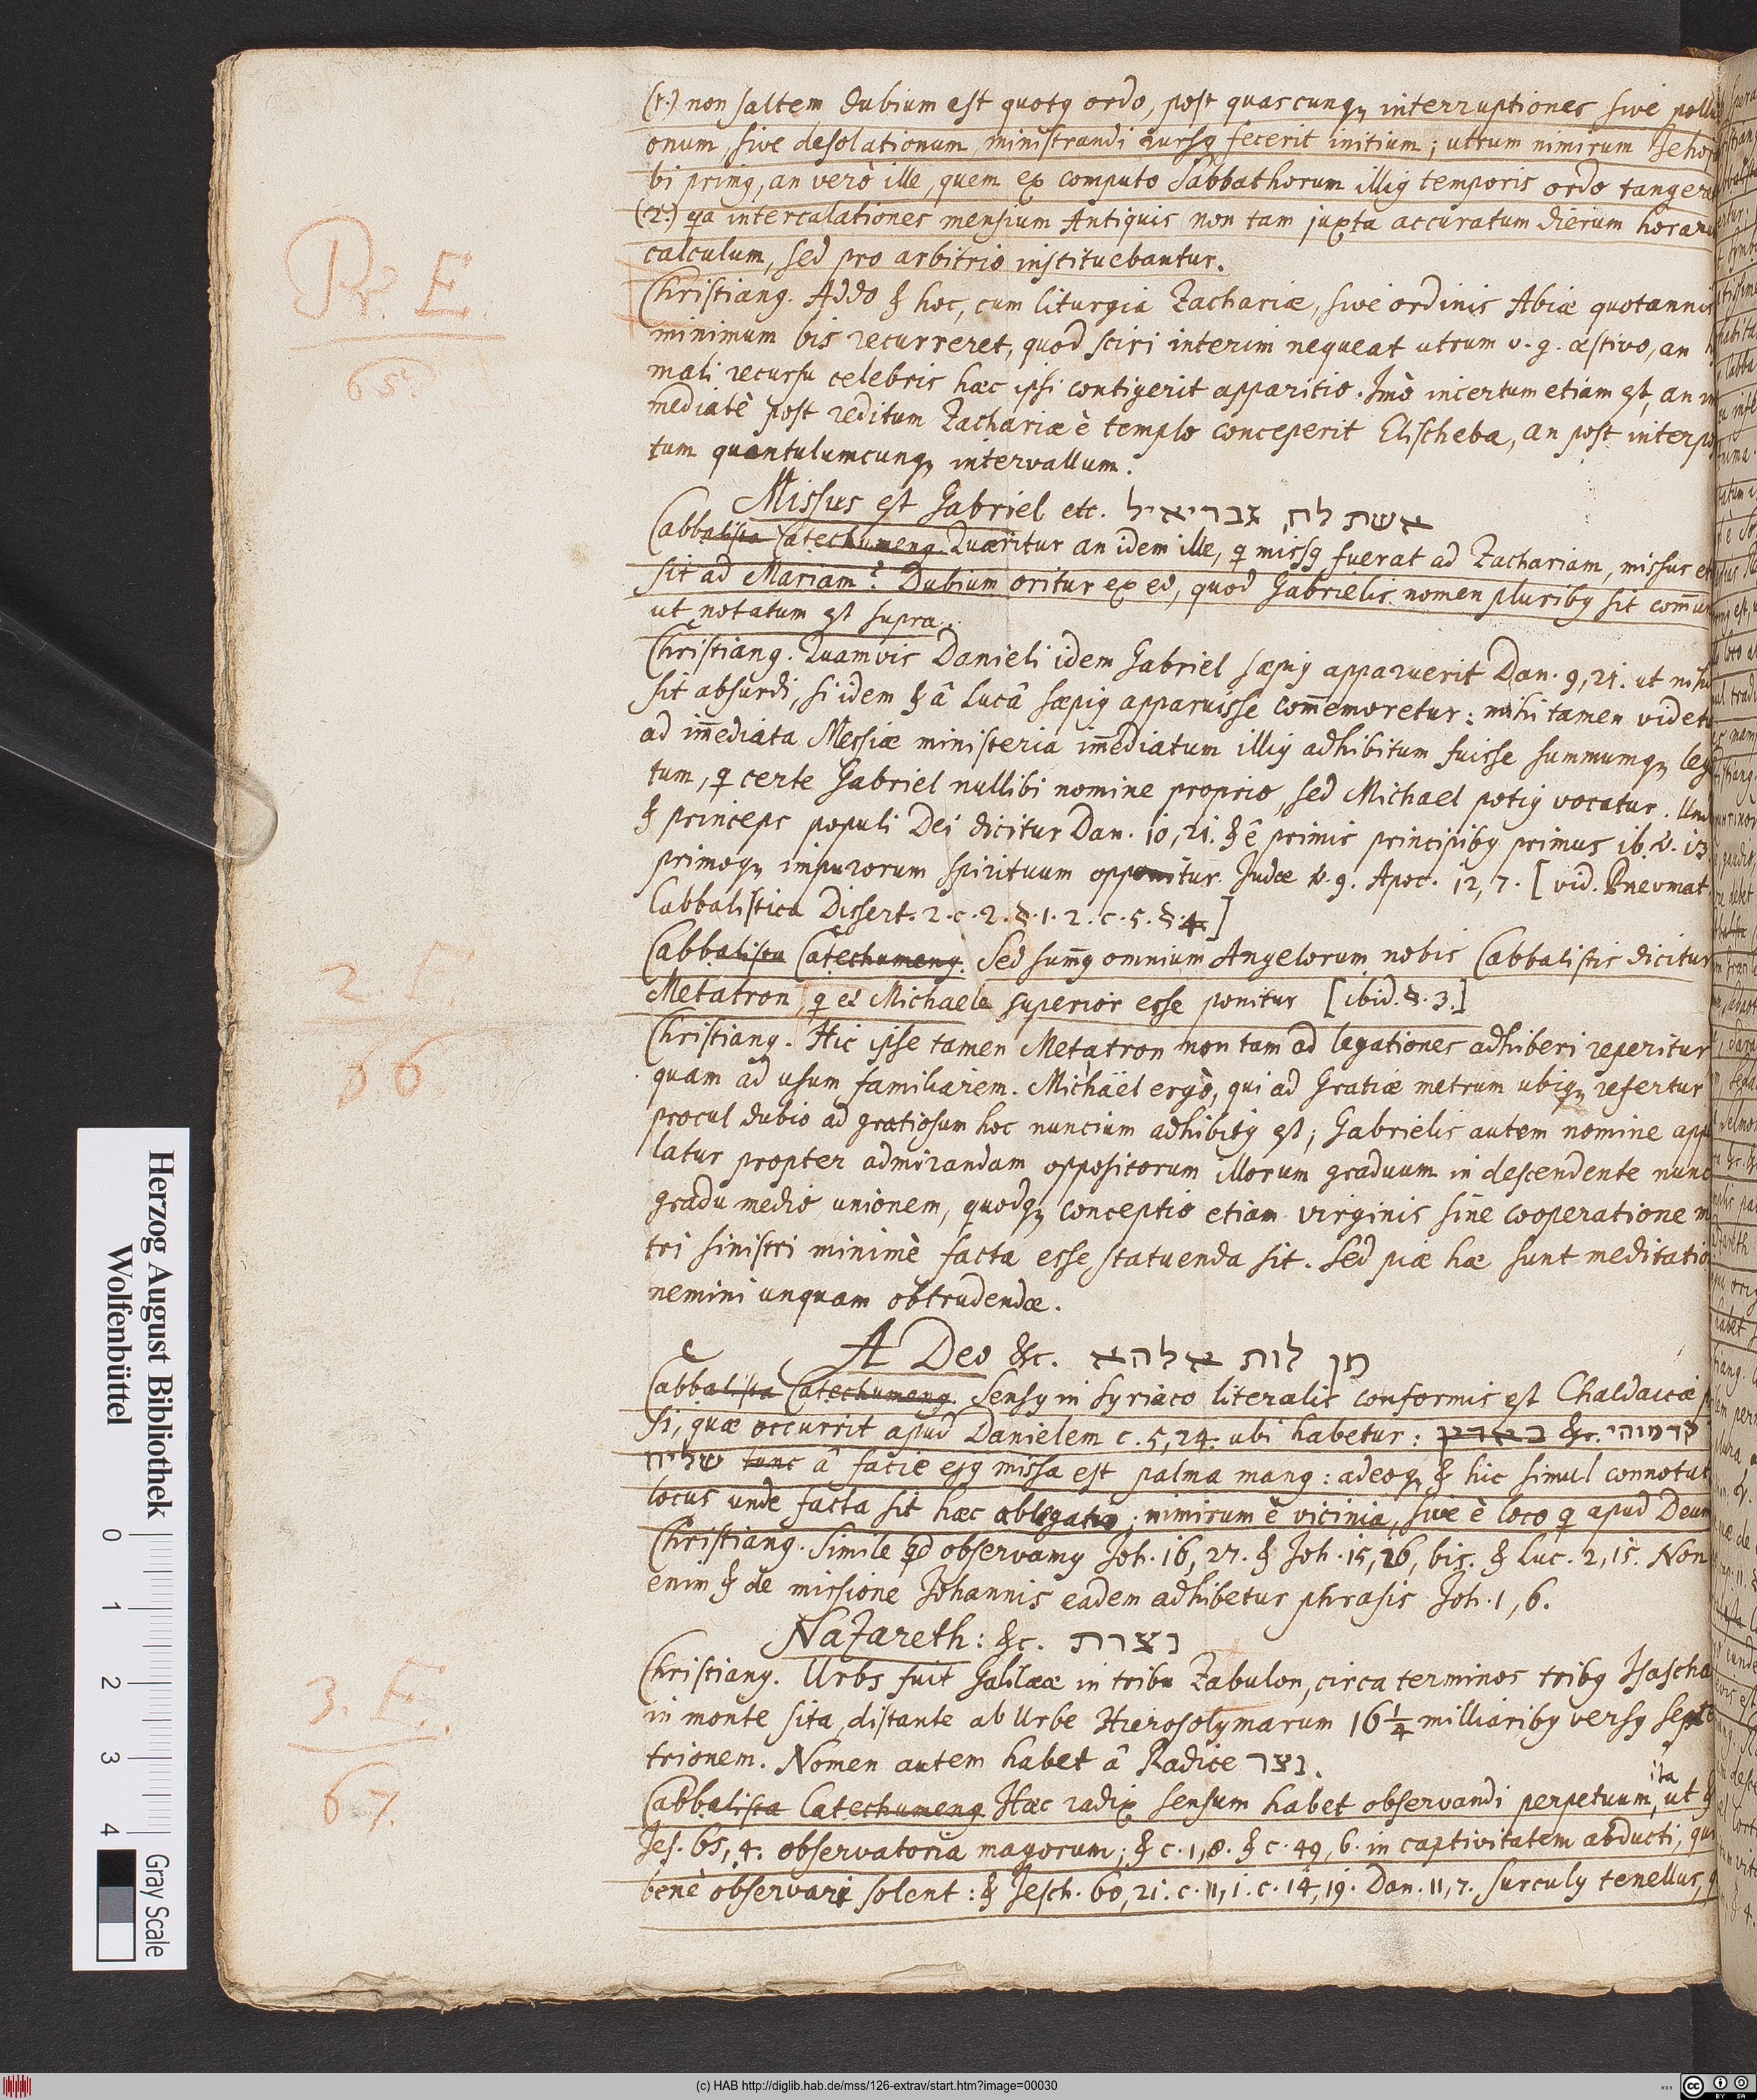 (1.) non saltem dubium est quotq ordo, post quascunq, interruptiones sive pollu
onum, sive desolationum, ministrandi rursq fecerit initium; utrum nimirum Jehoja
bi primq, an verò ille, quem ex computo Sabbathorum illiq temporis ordo tangere
(2.) qa intercalationes mensium Antiquis non tam juxta accuratum dierum horarum
calculum, sed pro arbitrio instituebantur.
Pr. E.
65.
Christianq. Addo & hoc, cum liturgia Zachariæ, sive ordinis Abiæ quotannis
minimum bis recurreret, quod sciri interim nequeat utrum v. g. æstivo, an
mali recursu celebris hæc ipsi contigerit apparitio. Imò incertum etiam est, an im
mediatè post reditum Zachariæ è templo conceperit Elischeba, an post interpo
tum quantulumcunq, intervallum.
Missus est Gabriel etc. אשתלח גבריאיל
Cabbalista Catechumenq. Quæritur an idem ille, q missq fuerat ad Zachariam, missus et
sit ad Mariam? Dubium oritur ex eo, quod Gabrielis nomen pluribq sit com̄un
ut notatum est supra.
Christianq. Quamvis Danieli idem Gabriel sæpiq apparuerit Dan. 9, 21. ut nihil
sit absurdi, si idem & â Lucâ sæpiq apparuisse com̄emoretur: mihi tamen videtu
ad im̄ediata Messiæ ministeria im̄ediatum illiq adhibitum fuisse summumq, lega
tum, q certe Gabriel nullibi nomine proprio, sed Michael potiq vocatur. Und
& princeps populi Dei dicitur Dan. 10, 21. & ê primis principibq primus ib. v. 13
primoq, impurorum spirituum opponitur. Judæ v. 9. Apoc. 12, 7. [vid. Pneumat.
Cabbalistica Dissert. 2. c. 2. §. 1. 2. c. 5. §. 4.]
2. E.
66
Cabbalista Catechumenq. Sed sum̄q omnium Angelorum nobis Cabbalistis dicitur
Metatron, q et Michaele superior esse ponitur [ibid. §. 3.]
Christianq. Hic ipse tamen Metatron non tam ad legationes adhiberi reperitur
quam ad usum familiarem. Michäel ergò, qui ad Gratiæ metrum ubiq, refertur
procul dubio ad gratiosum hoc nuncium adhibitq est; Gabrielis autem nomine appe
latur propter admirandam oppositorum illorum graduum in descendente nunc
gradu medio unionem, quodq, conceptio etiam virginis sine cooperatione m
tri sinistri minimè facta esse, statuenda sit. Sed piæ hæ sunt meditatio
nemini unquam obtrudendæ.
A Deo &c. מן לות אלהא
Cabbalista Catechumenq. Sensq in Syriaco literalis conformis est Chaldaicæ
si, quæ occurrit apud Danielem c. 5, 24. ubi habetur: באדין &c. קדמוהי
שליח tunc â facie ejq missa est palma manq: adeoq, & hic simul connotat
locus unde facta sit hæc oblegatio; nimirum è vicinia, sive è loco q apud Deum
Christianq. Simile qd observamq Joh. 16, 27. & Joh. 15, 26, bis. & Luc. 2, 15. Non
enim & de missione Johannis eadem adhibetur phrasis Joh. 1, 6.
Nazareth: &c. נצרת
3. E.
67.
Christianq. Urbs fuit Galilææ in tribu Zabulon, circa terminos tribq Isascha
in monte sita, distante ab Urbe Hierosolymarum 16 1/4 milliaribq versq septe
trionem. Nomen autem habet â Radice נצר.
Cabbalista Catechumenq Hæc radix sensum habet observandi perpetuum, ita ut &
Jes. 65, 4. observatoria magorum; & c. 1, 8. & c. 49, 6. in captivitatem abducti, qui
benè observari solent: & Jesch. 60, 21. c. 11, 1. c. 14, 19. Dan. 11, 7. surculq tenellus, q
Herzog August Bibliothek
Wolfenbüttel
0 1 2 3 4
Gray Scale
(c) HAB http://diglib.hab.de/mss/126-extrav/start.htm?image=00030